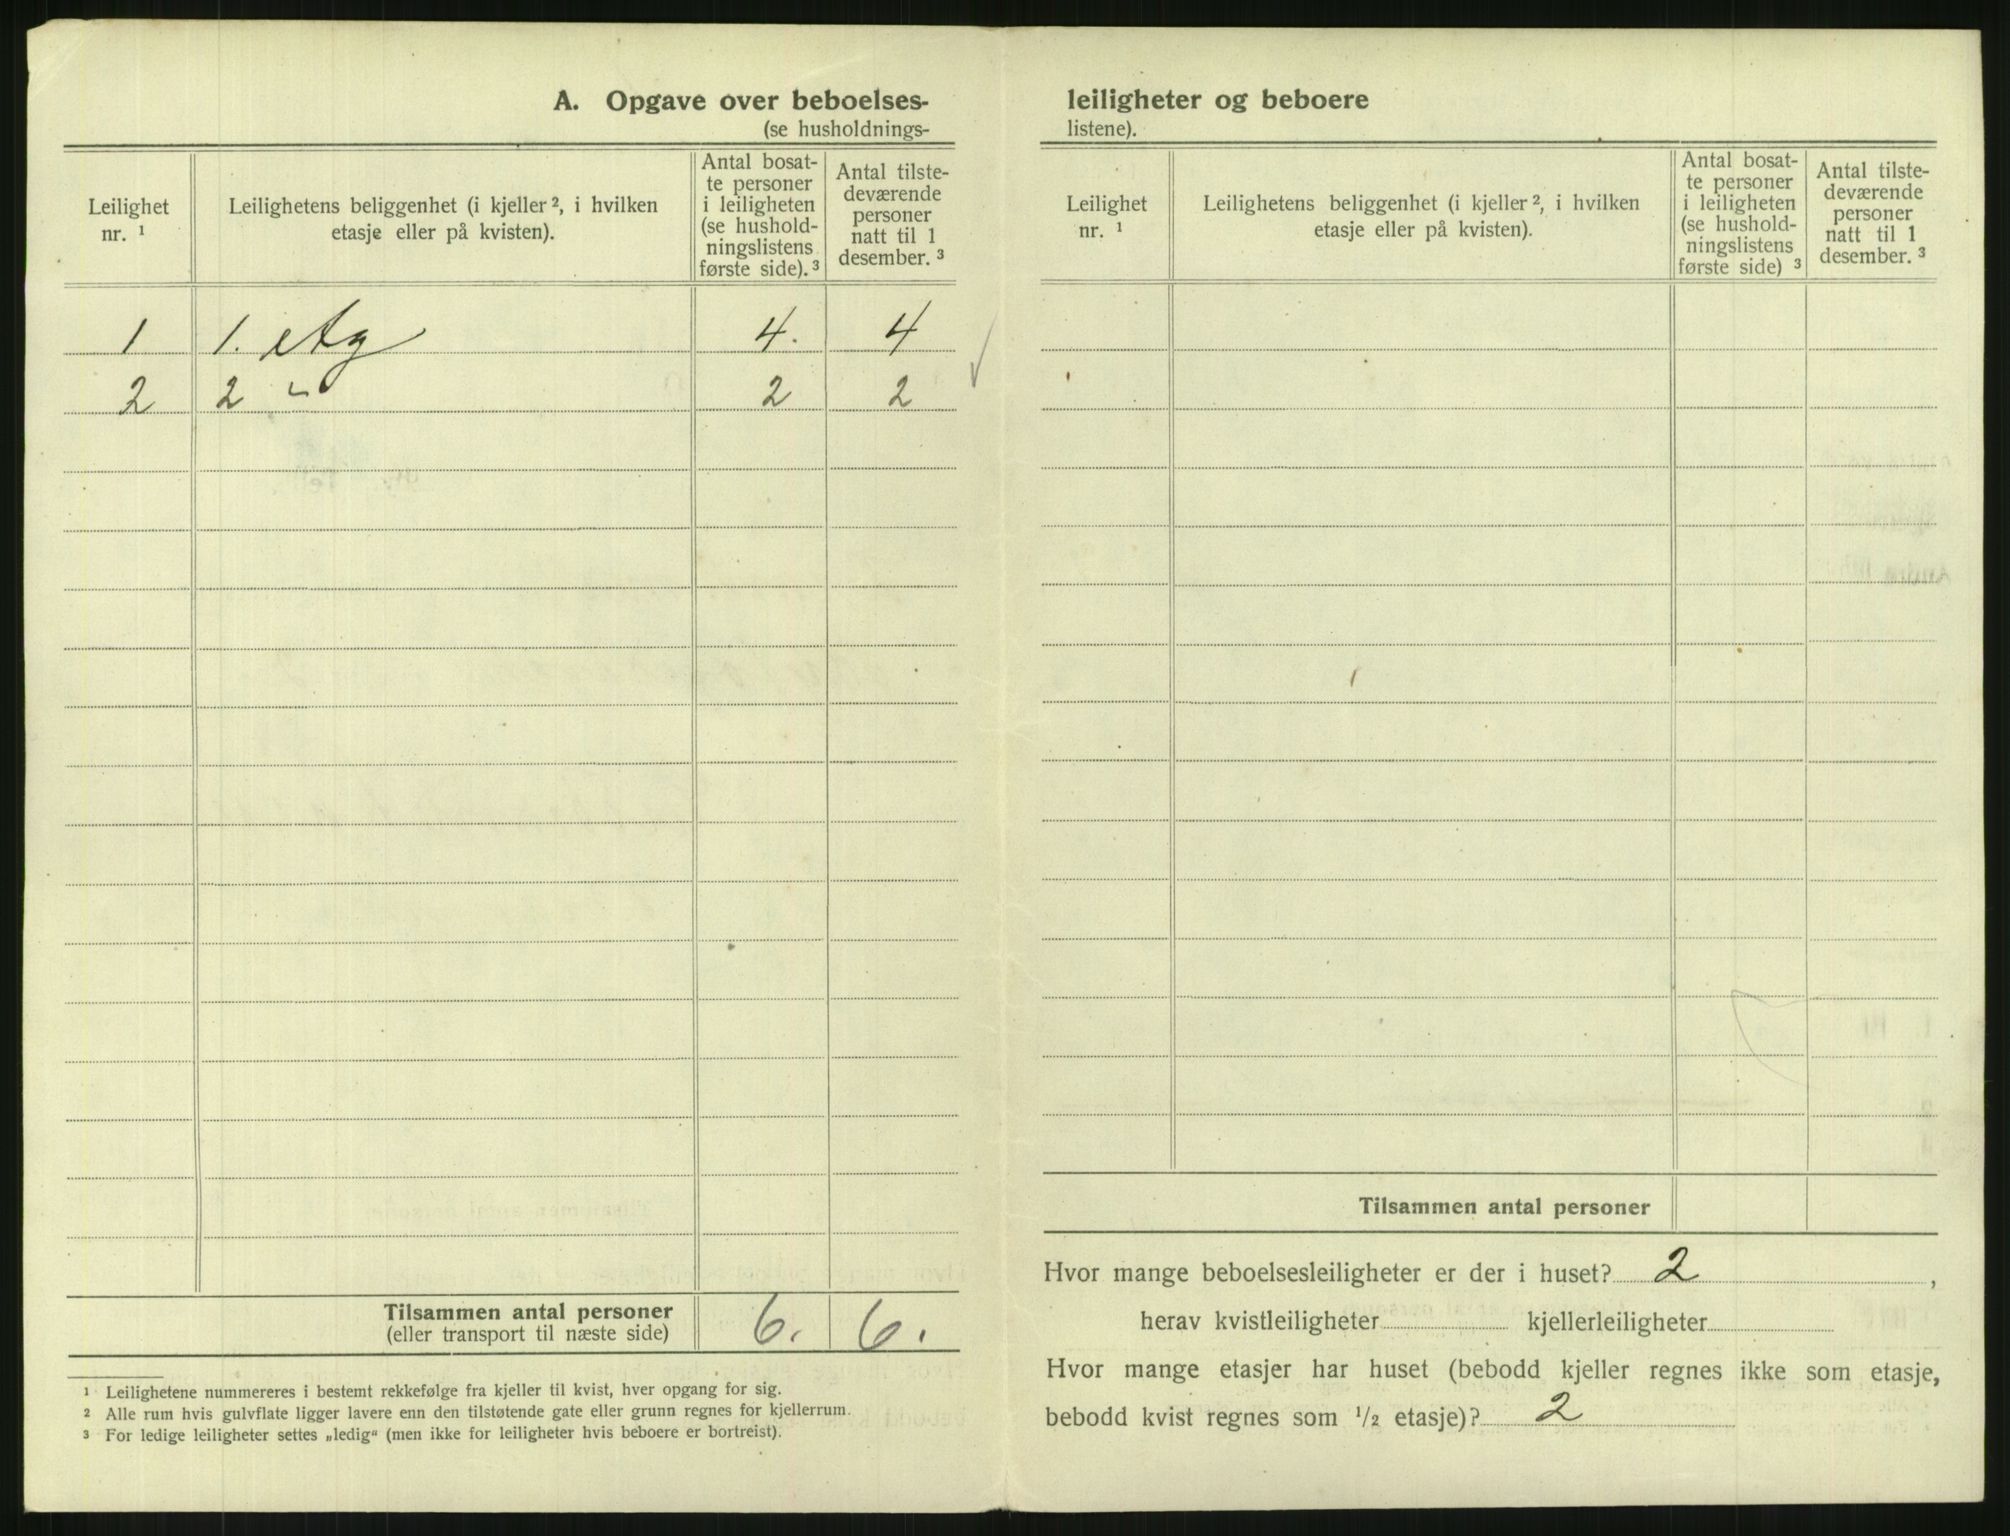 A. Opgave over beboelses-
(se husholdnings-
Leilighet
nr. 1
Leilighetens beliggenhet (i kjeller 2, i hvilken
etasje eller på kvisten).
Antal bosat-
te personer
i leiligheten
(se hushold-
ningslistens
første side). 3
Antal tilste-
deværende
personer
natt til 1
desember. 3
1 1. etg 4. 4
2 2 " 2 2
Tilsammen antal personer
(eller transport til næste side)
6. 6.
1 Leilighetene nummereres i bestemt rekkefølge fra kjeller til kvist, hver opgang for sig.
2 Alle rum hvis gulvflate ligger lavere enn den tilstøtende gate eller grunn regnes for kjellerrum.
3 For ledige leiligheter settes „ledig" (men ikke for leiligheter hvis beboere er bortreist).
leiligheter og beboere
listene).
Leilighet
nr. 1
Leilighetens beliggenhet (i kjeller 2, i hvilken
etasje eller på kvisten).
Antal bosat-
te personer
i leiligheten
(se hushold-
ningslistens
første side) 3
Antal tilste-
deværende
personer
natt til 1
desember. 3
Tilsammen antal personer
Hvor mange beboelsesleiligheter er der i huset? 2 ,
herav kvistleiligheter kjellerleiligheter
Hvor mange etasjer har huset (bebodd kjeller regnes ikke som etasje,
bebodd kvist regnes som 1/2 etasje)? 2